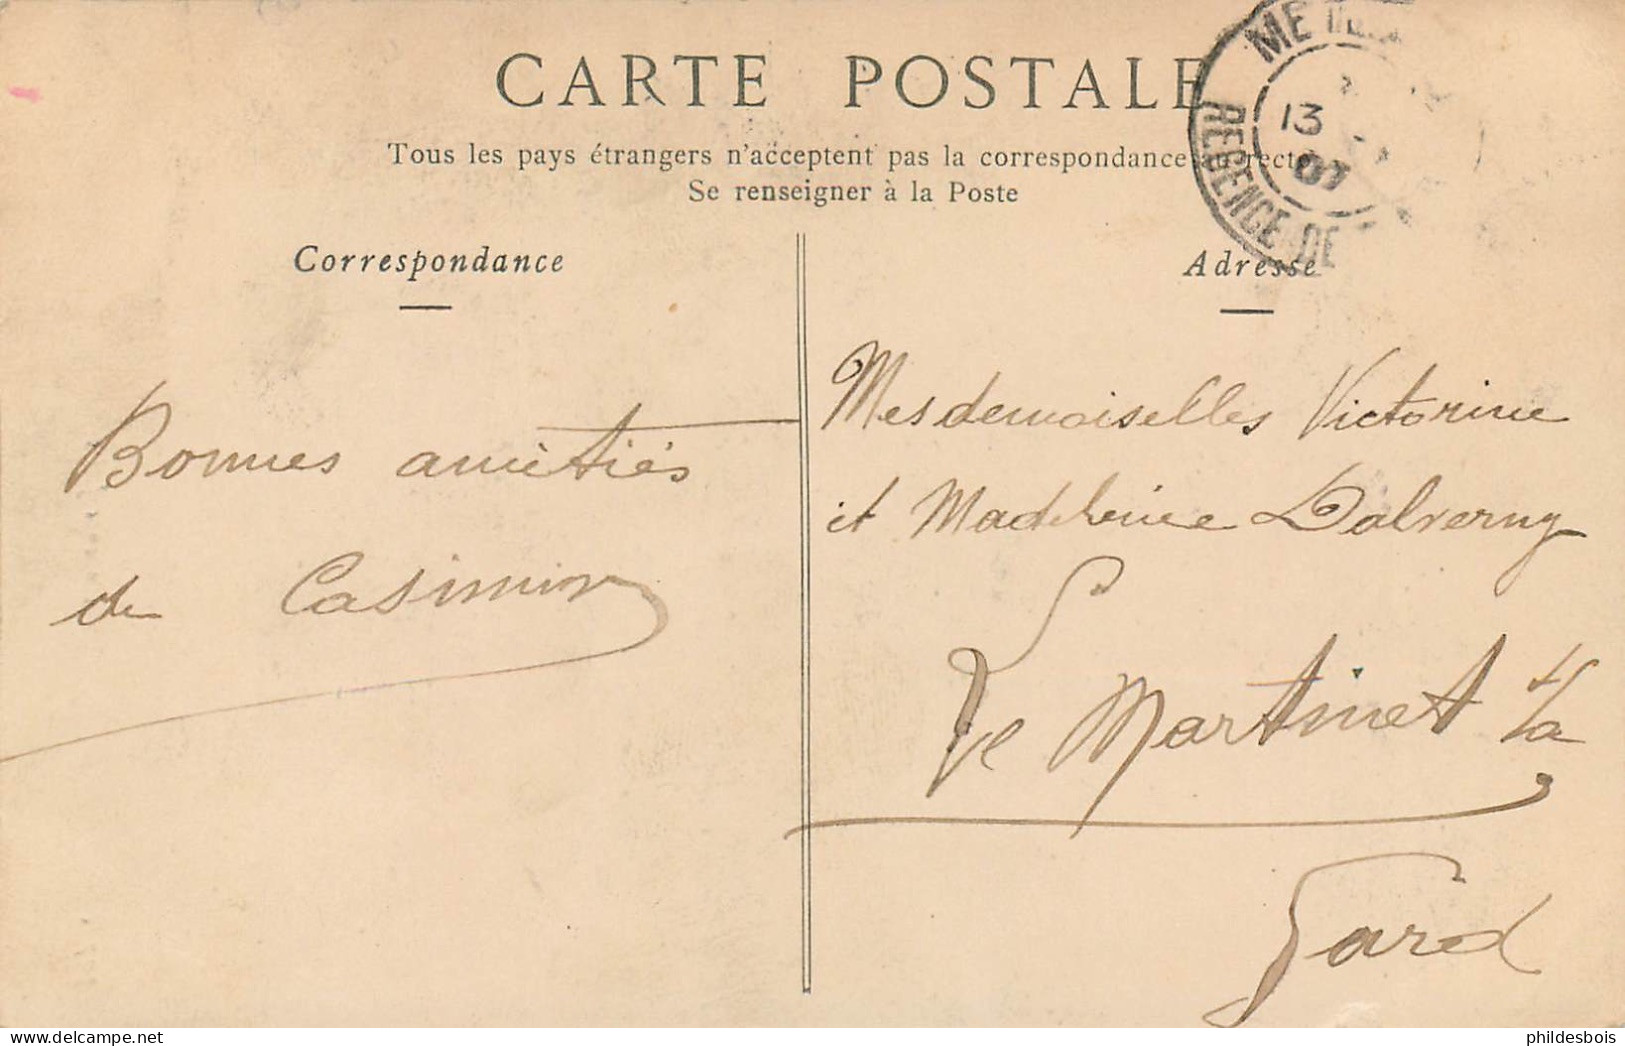 CARTE POSTALE
Tous les pays étrangers n'acceptent pas la correspondance au recto
Se renseigner à la Poste
Correspondance
Adresse
13
07
REGENCE DE
Bonnes amitiés
de Casimir
Mesdemoiselles Victorine
et Madeleine Dalverny
Le Martinet
Gard
delcampe.net
phildesbois